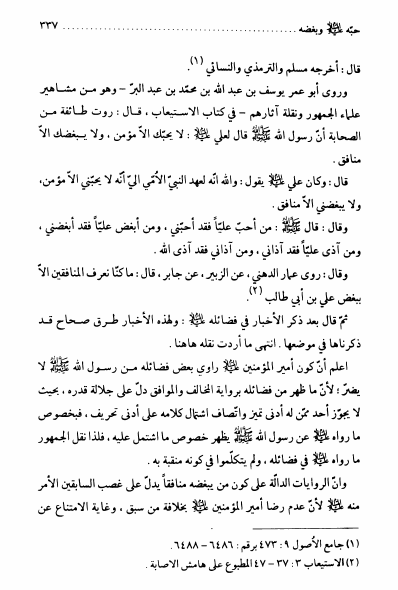 حبّه ﷺ وبغضه ........................................ ٣٣٧
قال : أخرجه مسلم والترمذي والنسائي (١).
وروى أبو عمر يوسف بن عبد الله بن محمّد بن عبد البرّ – وهو مـن مشـاهير
علماء الجمهور ونقلة آثارهم – في كتاب الاستيعاب ، قـال : روت طـائفة مـن
الصحابة أنّ رسول الله ﷺ قال لعلي ﵇ : لا يحبّك الاّ مؤمن ، ولا يـبغضك الاّ
منافق .
قال : وكان علي ﵇ يقول : والله انّه لعهد النبيّ الاُمّي اليّ أنّه لا يحبّني الاّ مؤمن،
ولا يبغضني الاّ منافق .
وقال : قال ﷺ : من أحبّ عليّاً فقد أحبّني ، ومن أبغض عليّاً فقد أبغضني ،
ومن آذى عليّاً فقد آذاني ، ومن آذاني فقد آذى الله .
وقال : روى عمار الدهني ، عن الزبير ، عن جابر ، قال : ما كنّا نعرف المنافقين الاّ
ببغض علي بن أبي طالب (٢).
ثمّ قال بعد ذكر الأخبار في فضائله ﵇ : ولهذه الأخبار طـرق صـحاح قـد
ذكرناها في موضعها . انتهى ما أردت نقله هاهنا .
اعلم أنّ كون أمير المؤمنين ﵇ راوي بعض فضائله مـن رسـول الله ﷺ لا
يضرّ ؛ لأنّ ما ظهر من فضائله برواية المخالف والموافق دلّ على جلالة قدره ، بحيث
لا يجوّز أحد ممّن له أدنى تميز واتّصاف اشتمال كلامه على أدنى تحريف ، فبخصوص
ما رواه ﵇ عن رسول الله ﷺ يظهر خصوص ما اشتمل عليه ، فلذا نقل الجمهور
ما رواه ﵇ في فضائله ، ولم يتكلّموا في كونه منقبة به .
وانّ الروايات الدالّة على كون من يبغضه منافقاً يدلّ على غصب السابقين الأمر
منه ﵇ لأنّ عدم رضا أمير المؤمنين ﵇ بخلافة من سبق ، وغاية الامتناع عن
(١) جامع الاُصول ٩ : ٤٧٣ برقم : ٦٤٨٦ – ٦٤٨٨ .
(٢) الاستيعاب ٣ : ٣٧ – ٤٧ المطبوع على هامش الاصابة .